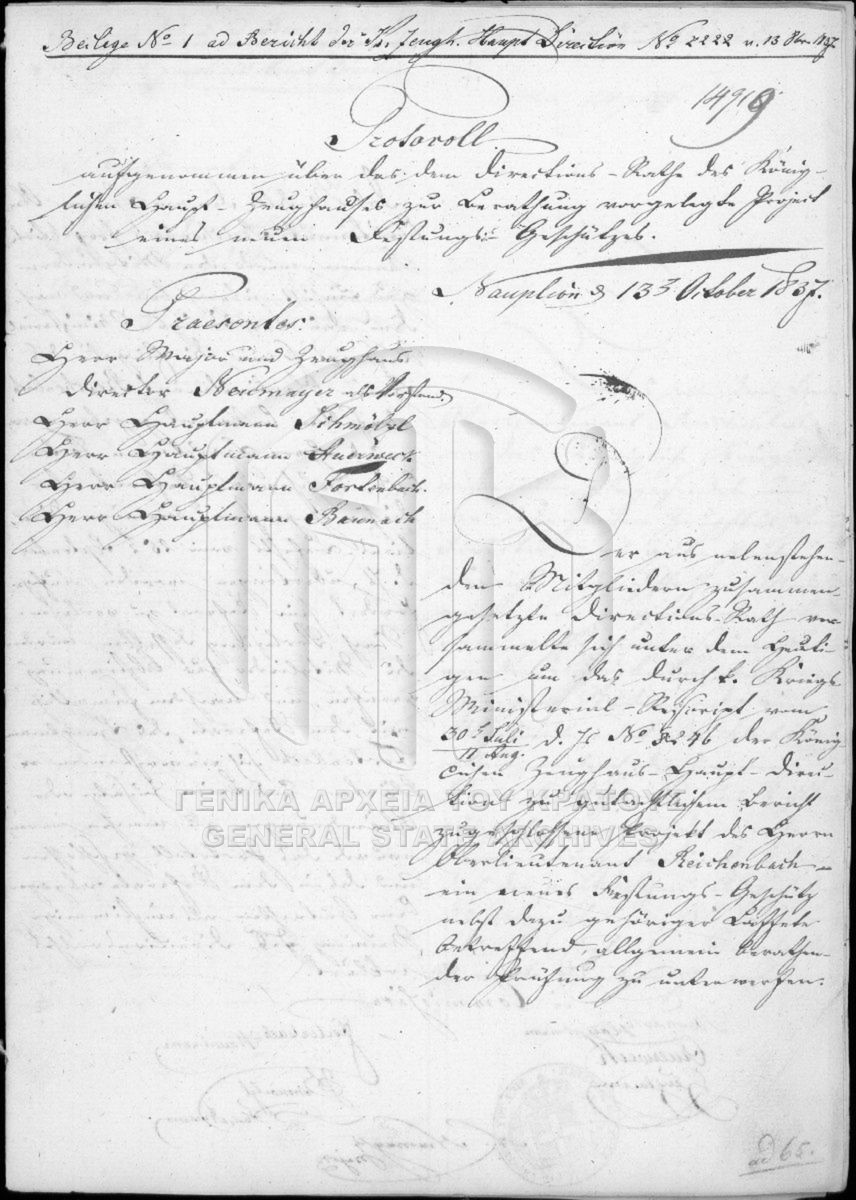 Beilage No 1 ad Bericht der K. Zeugh. Haupt Direction No 2222 v. 13 8br 1837.
14919
Protocoll
aufgenommen über das dem Directions-Rathe des König-
lichen Haupt-Zeughauses zur Berathung vorgelegte Project
eines neuen Festungs-Geschützes.
Nauplion d 13 October 1837.
Praesentes:
Herr Major und Zeughaus
Director Neumayer als Vorstand
Herr Hauptmann Schmölzl
Herr Hauptmann
Herr Hauptmann Fortenbach.
Herr Hauptmann Baunach
Der aus nebenstehen-
den Mitgliedern zusammen-
gesetzte Directions-Rath ver
sammelte sich unter dem Heuti-
gen um das durch k. Kriegs
Ministerial-Rescript vom
30t Juli / 11 Aug. d. Js No der König
lichen Zeughaus-Haupt-Direc-
tion zu gutachtlichem Bericht
zugeschlossene Projekt des Herrn
Oberlieutenant Reichenbach
ein neues Festungs-Geschütz
nebst dazu gehöriger Laffete
betreffend, allgemein berathen-
der Prüfung zu unterwerfen.
ΓΕΝΙΚΑ ΑΡΧΕΙΑ ΤΟΥ ΚΡΑΤΟΥΣ
GENERAL STATE ARCHIVES
ad 65.